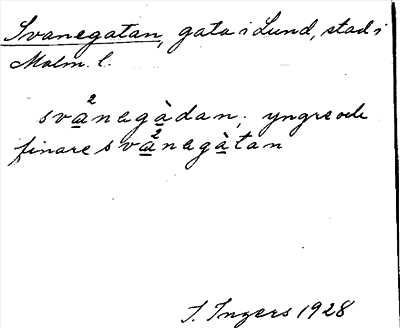 Svanegatan, gata i Lund, stad i
Malm. l.
sva²negàdan, yngre och
finare sva²negàtan
I. Ingers 1928